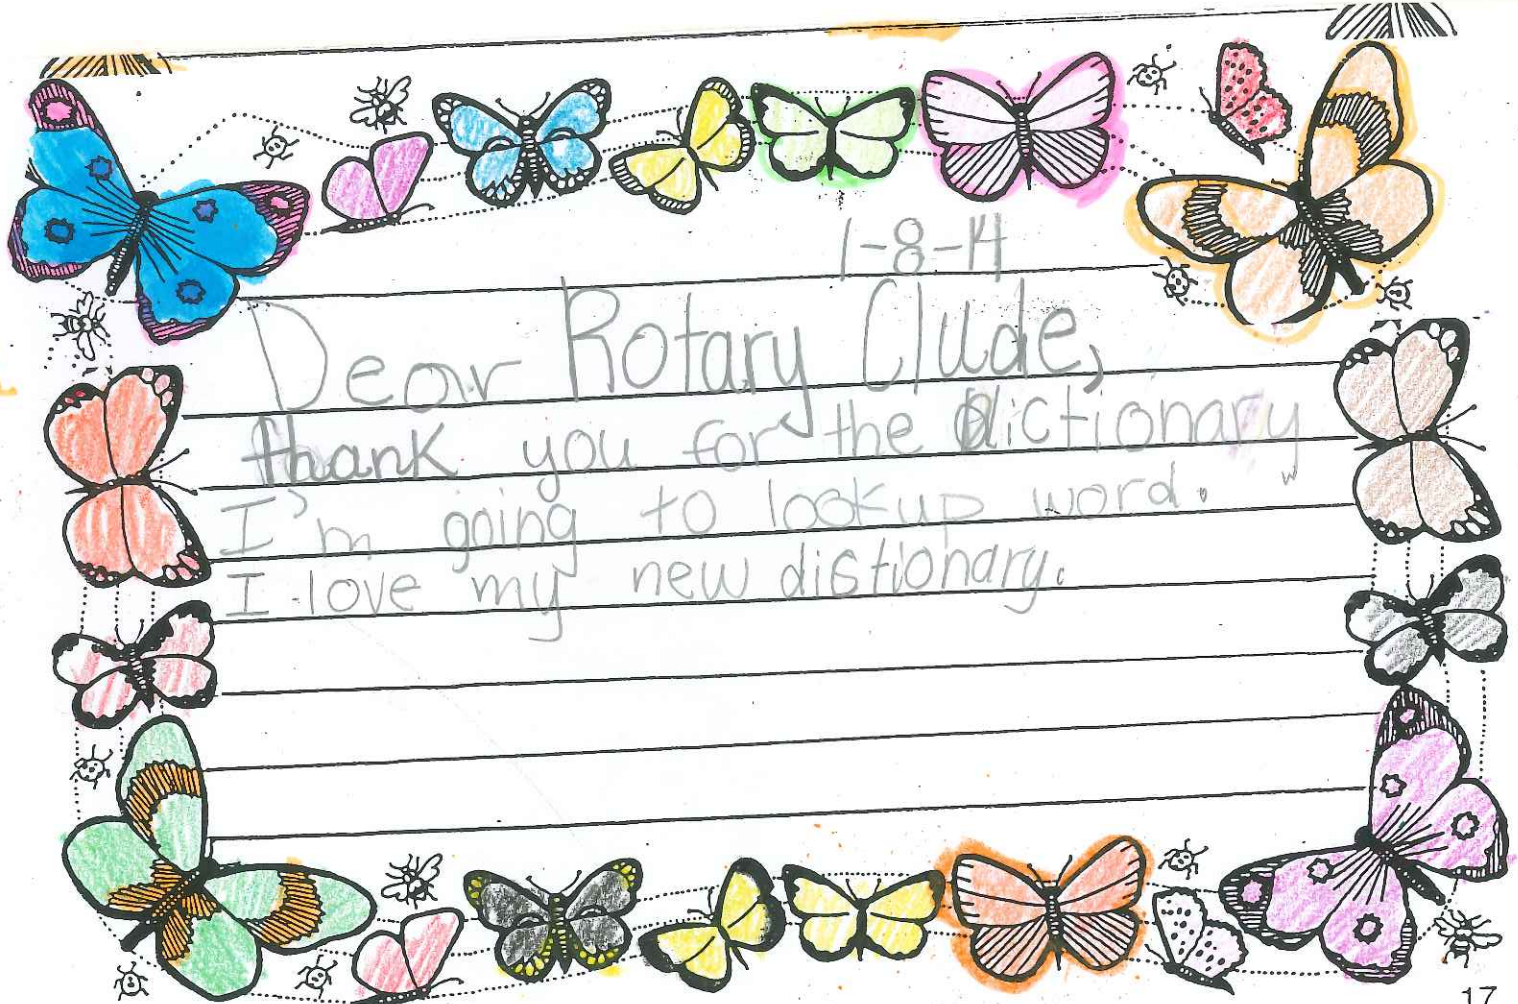 1-8-14
Dear Rotary Clude,
thank you for the dictionary
I'm going to lookup word.
I love my new distionary.
17